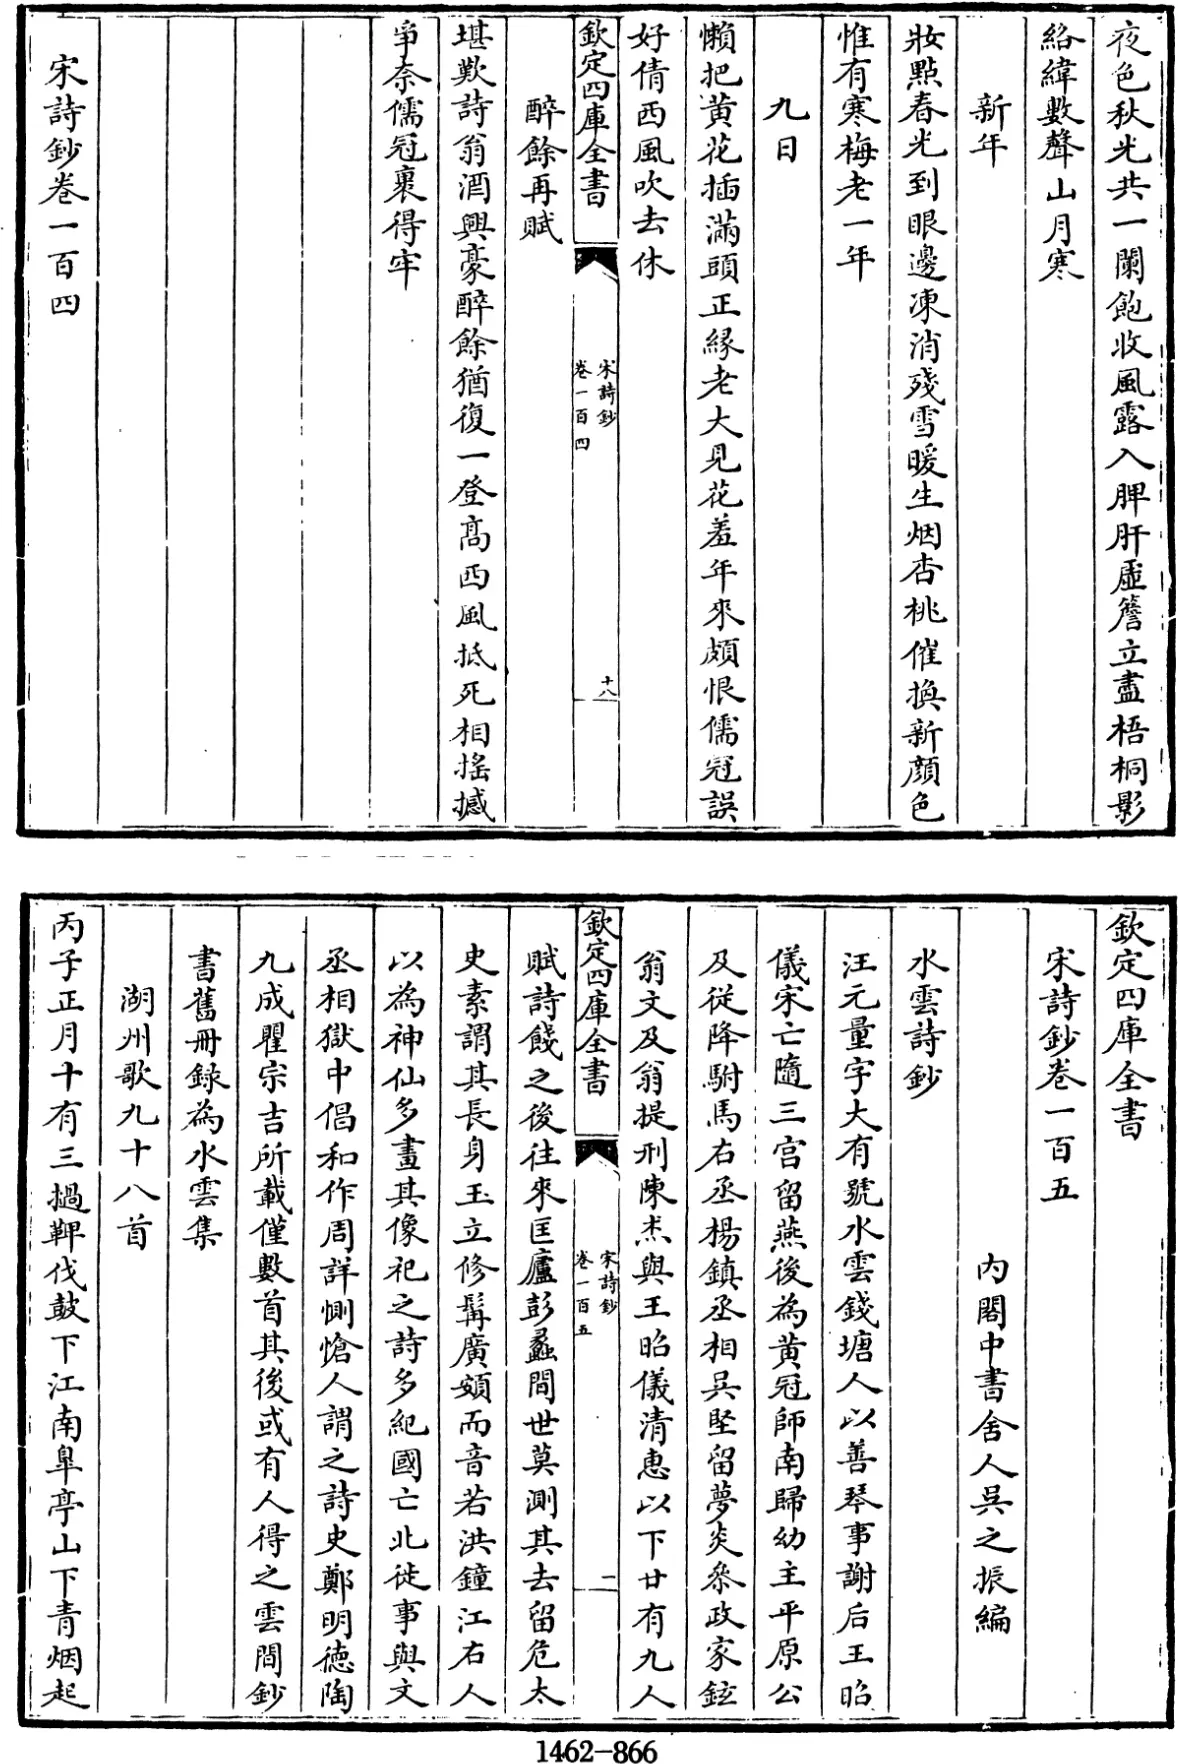 夜色秋光共一闌飽收風露入脾肝虛簷立盡梧桐影
絡緯數聲山月寒
新年
妝點春光到眼邊凍消殘雪暖生烟杏桃催換新顔色
惟有寒梅老一年
九日
懶把黄花插滿頭正緣老大見花羞年來頗恨儒冠誤
好倩西風吹去休
欽定四庫全書
宋詩鈔
卷一百四
十八
醉餘再賦
堪歎詩翁酒興豪醉餘猶復一登高西風抵死相搖撼
爭奈儒冠裹得牢
宋詩鈔卷一百四
欽定四庫全書
宋詩鈔卷一百五
内閣中書舍人吳之振編
水雲詩鈔
汪元量字大有號水雲錢塘人以善琴事謝后王昭
儀宋亡隨三宫留燕後為黄冠師南歸幼主平原公
及從降駙馬右丞楊鎮丞相吳堅留夢炎叅政家鉉
翁文及翁提刑陳杰與王昭儀清惠以下廿有九人
欽定四庫全書
宋詩鈔
卷一百五
一
賦詩餞之後往來匡廬彭蠡間世莫測其去留危太
史素謂其長身玉立修髯廣顙而音若洪鐘江右人
以為神仙多畫其像祀之詩多紀國亡北徙事與文
丞相獄中倡和作周詳惻愴人謂之詩史鄭明德陶
九成瞿宗吉所載僅數首其後或有人得之雲間鈔
書舊冊録為水雲集
湖州歌九十八首
丙子正月十有三撾鞞伐鼓下江南臯亭山下青烟起
1462-866